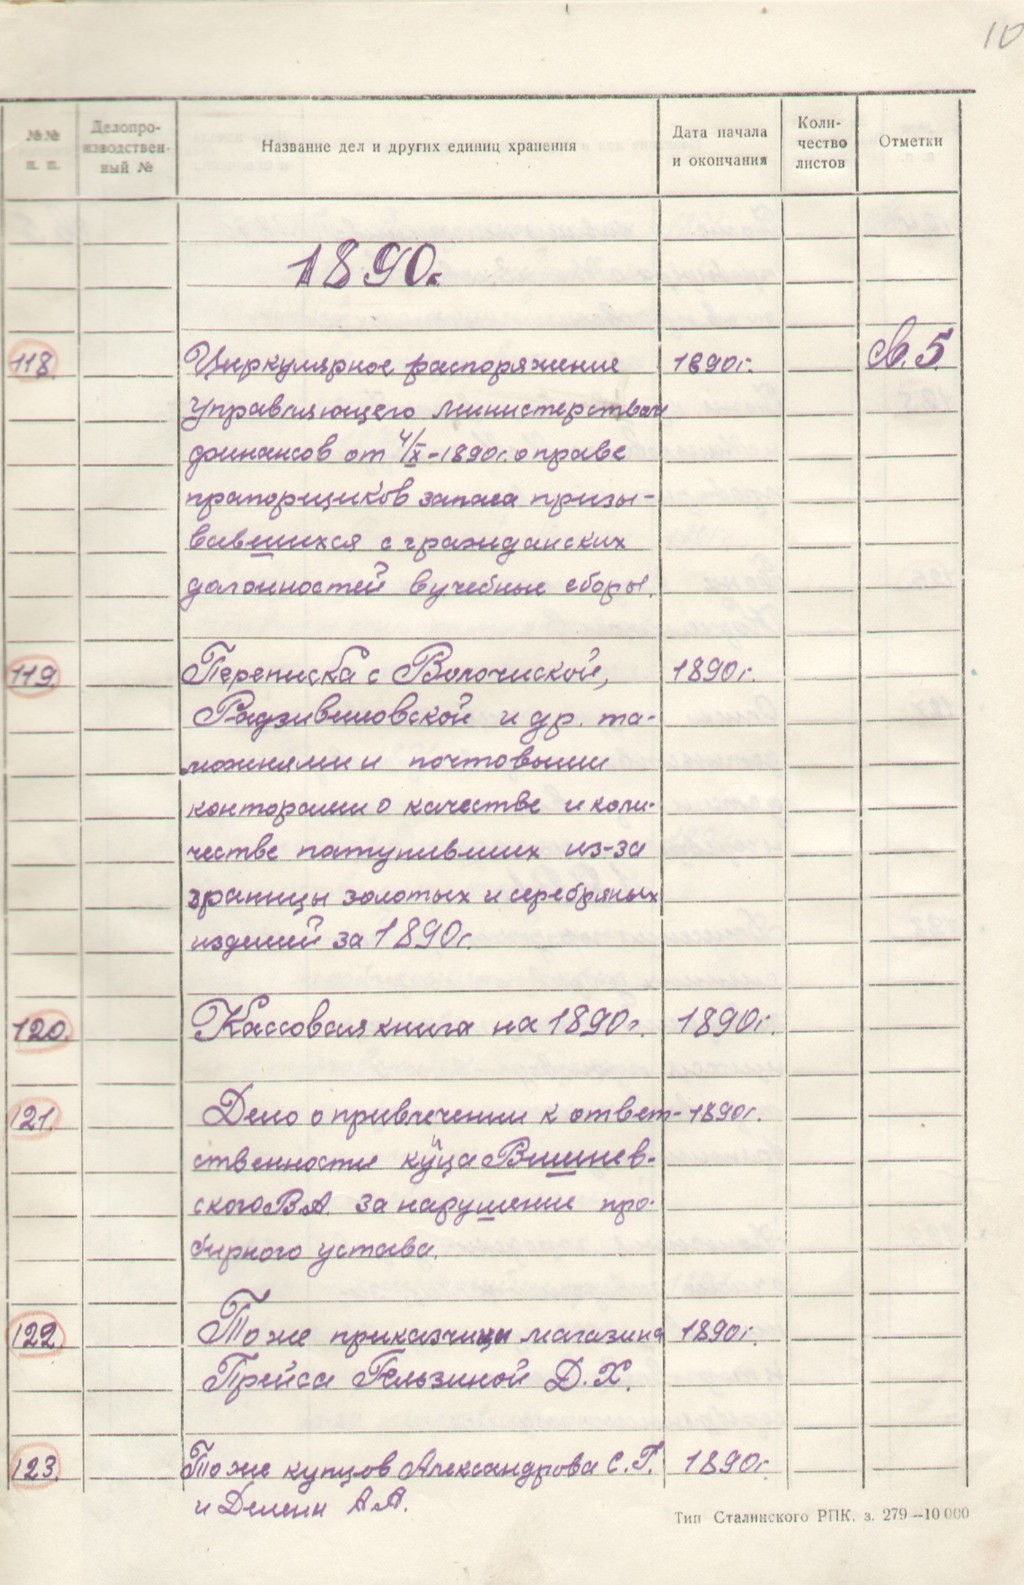 10
№№ п. п.
Делопро-
изводствен-
ный №
Название дел и других единиц хранения
Дата начала
и окончания
Коли-
чество
листов
Отметки
1890г.
118. Циркулярное распоряжение 1890г. св. 5
управляющего министерством
финансов от 4/X-1890г. о праве
прапорщиков запаса призы-
вавшихся с гражданских
должностей в учебные сборы.
119. Переписка с Волочиской, 1890г.
Радзивиловской и др. та-
можнями и почтовыми
конторами о качестве и коли-
честве поступивших из-за
границы золотых и серебряных
изделий за 1890г.
120. Кассовая книга на 1890г. 1890г.
121. Дело о привлечении к ответ- 1890г.
ственности купца Вишнев-
ского В.А. за нарушение про-
бирного устава.
122. То же приказчицы магазина 1890г.
Прейса Гельзиной Д.Х.
123. То же купцов Александрова С.Г. 1890г.
и А.А.
Тип Сталинского РПК. з. 279—10 000